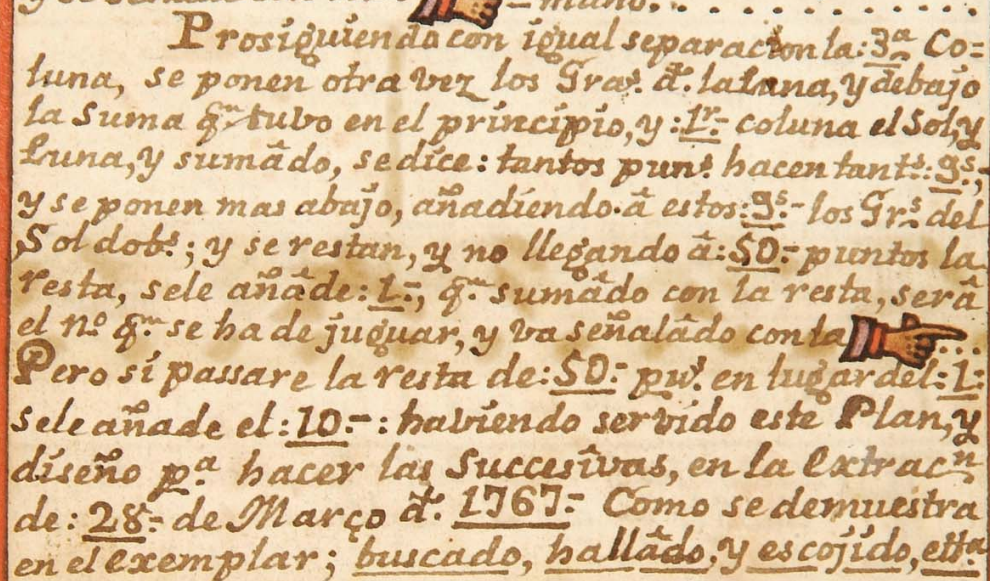 mano. . . . . . . . . . . .
Prosiguiendo con igual separacion la: 3ª Co=
luna, se ponen otra vez los Gras. đ. la Luna, y debajo
la Suma q.ⁿ tubo en el principio, y: 1ʳ- coluna el Sol, y
Luna, y sumâdo, se dice: tantos punˢ. hacen tantˢ.: gˢ.,
y se ponen mas abajo, añadiendo. â estos: gˢ.- los Gr.ˢ del
Sol dobˢ.; y se restan, y no llegando â: 50:- puntos la
resta, se le añâde: 1:-, q.ⁿ sumâdo con la resta, serâ
el n.º q.ⁿ se ha de juguar, y va señalâdo con la . . .
Pero si passare la resta de: 50:- pu.ˢ en lugar del: 1:
se le añade el: 10.-: haviendo servido este Plan, y
diseño p.ª hacer las Succesivas, en la extracⁿ
de: 28:- de Março đ. 1767:- Como se demuestra
en el exemplar; buscado, hallâdo, y escojido, ettª